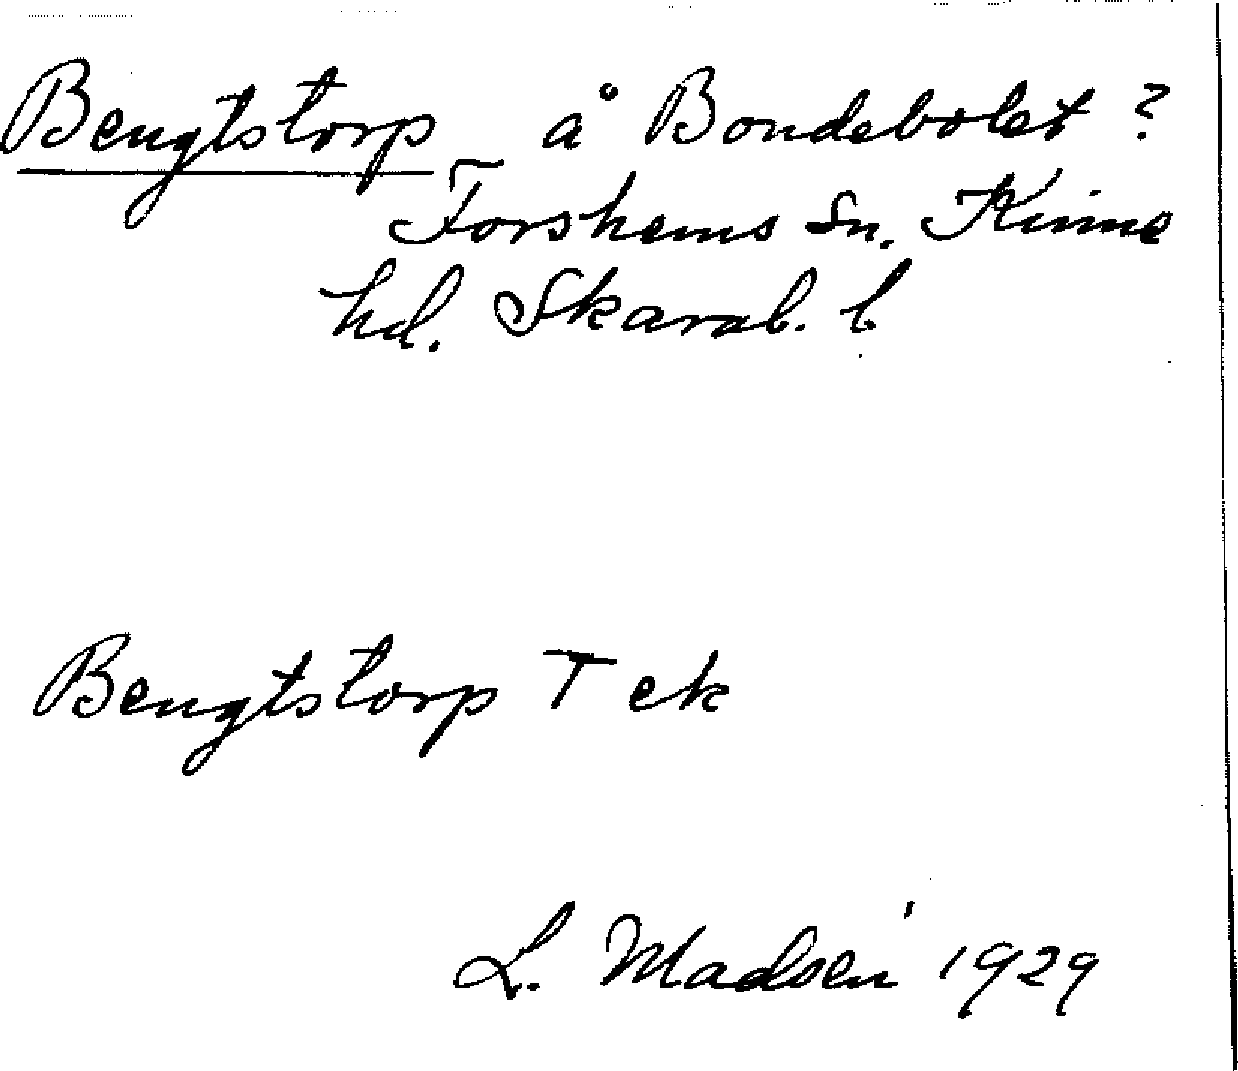 Bengtstorp å Bondebolet ?
Forshems Sn. Kinne
hd. Skarab. l
Bengtstorp T ek
L. Madsén 1929